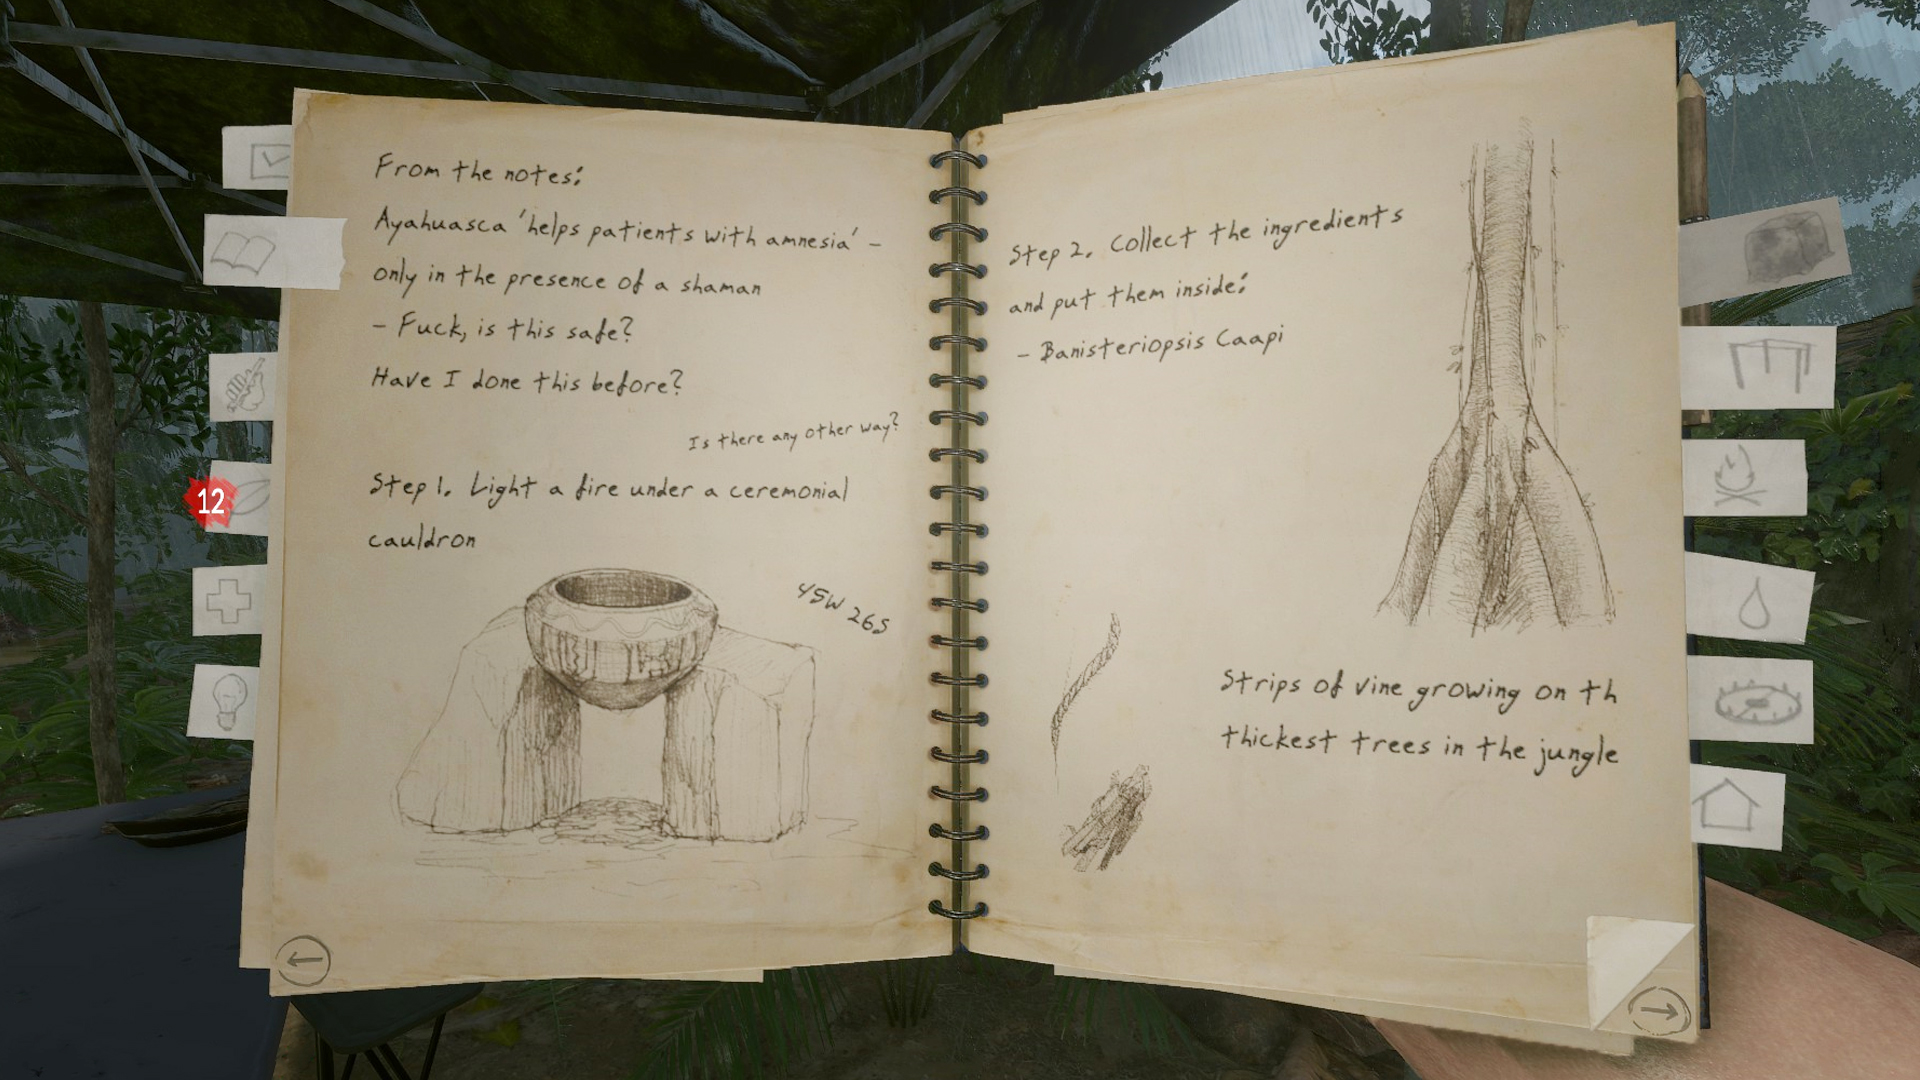 From the notes:
Ayahuasca 'helps patients with amnesia' -
only in the presence of a shaman
- Fuck, is this safe?
Have I done this before?
Is there any other way?
Step 1. Light a fire under a ceremonial
cauldron
45W 26S
12
Step 2. Collect the ingredients
and put them inside:
- Banisteriopsis Caapi
Strips of vine growing on th
thickest trees in the jungle